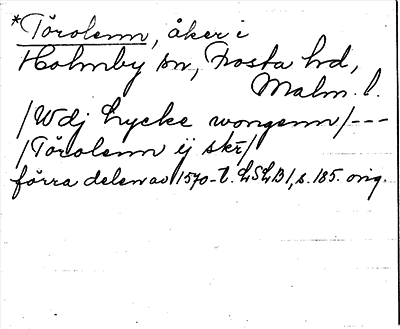 *Törolenn, åker i
Holmby sn, Frosta hd,
Malm. l.
/Wdj hycke wongenn/ ---
/Törolenn ij skr/
förra delen av 1570-t. LSLB1, s. 185. orig.